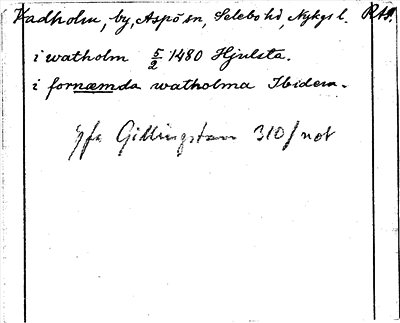 Vadholm, by, Aspö sn, Selebo hd, Nykgs l. RAP.
i watholm 5/2 1480 Hjulsta.
i fornæmda watholma Ibidem.
Jfr Gillingstam 310 f not